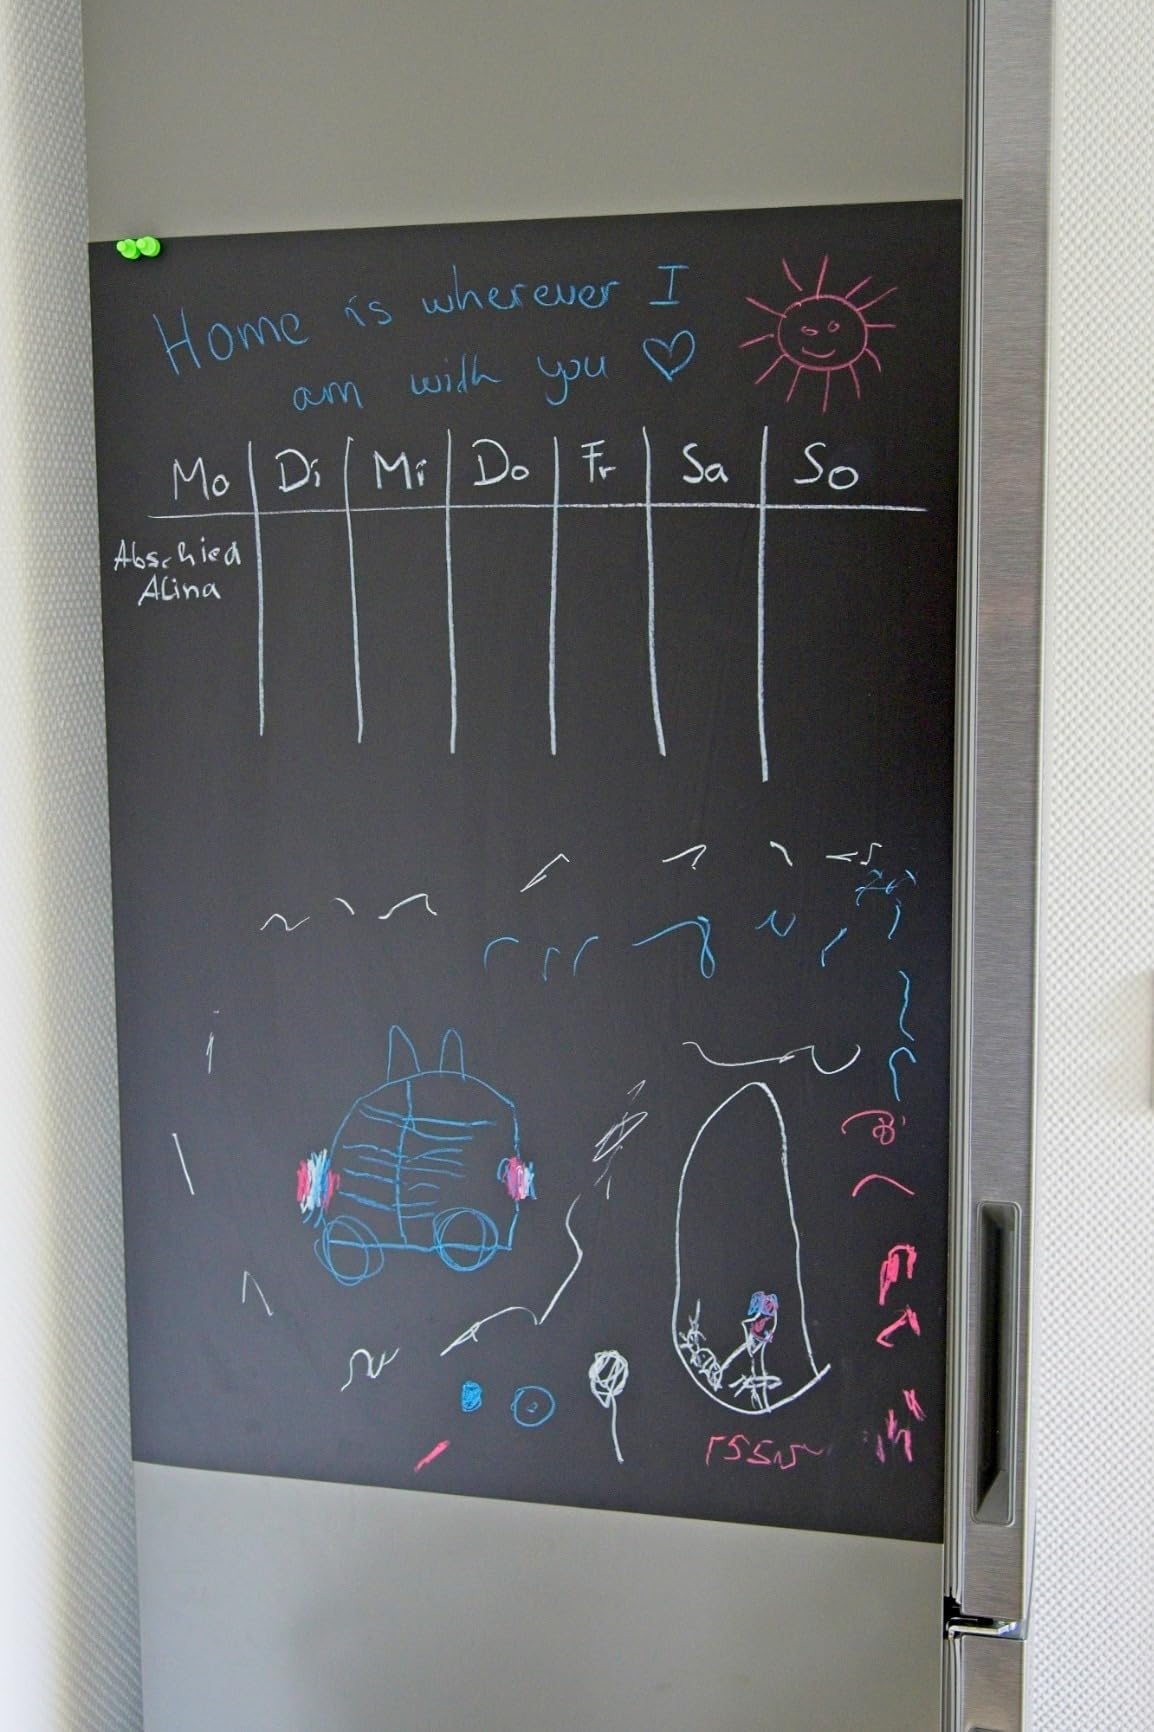 Home is wherever I
am with you ♡
Mo Di Mi Do Fr Sa So
Abschied
Alina